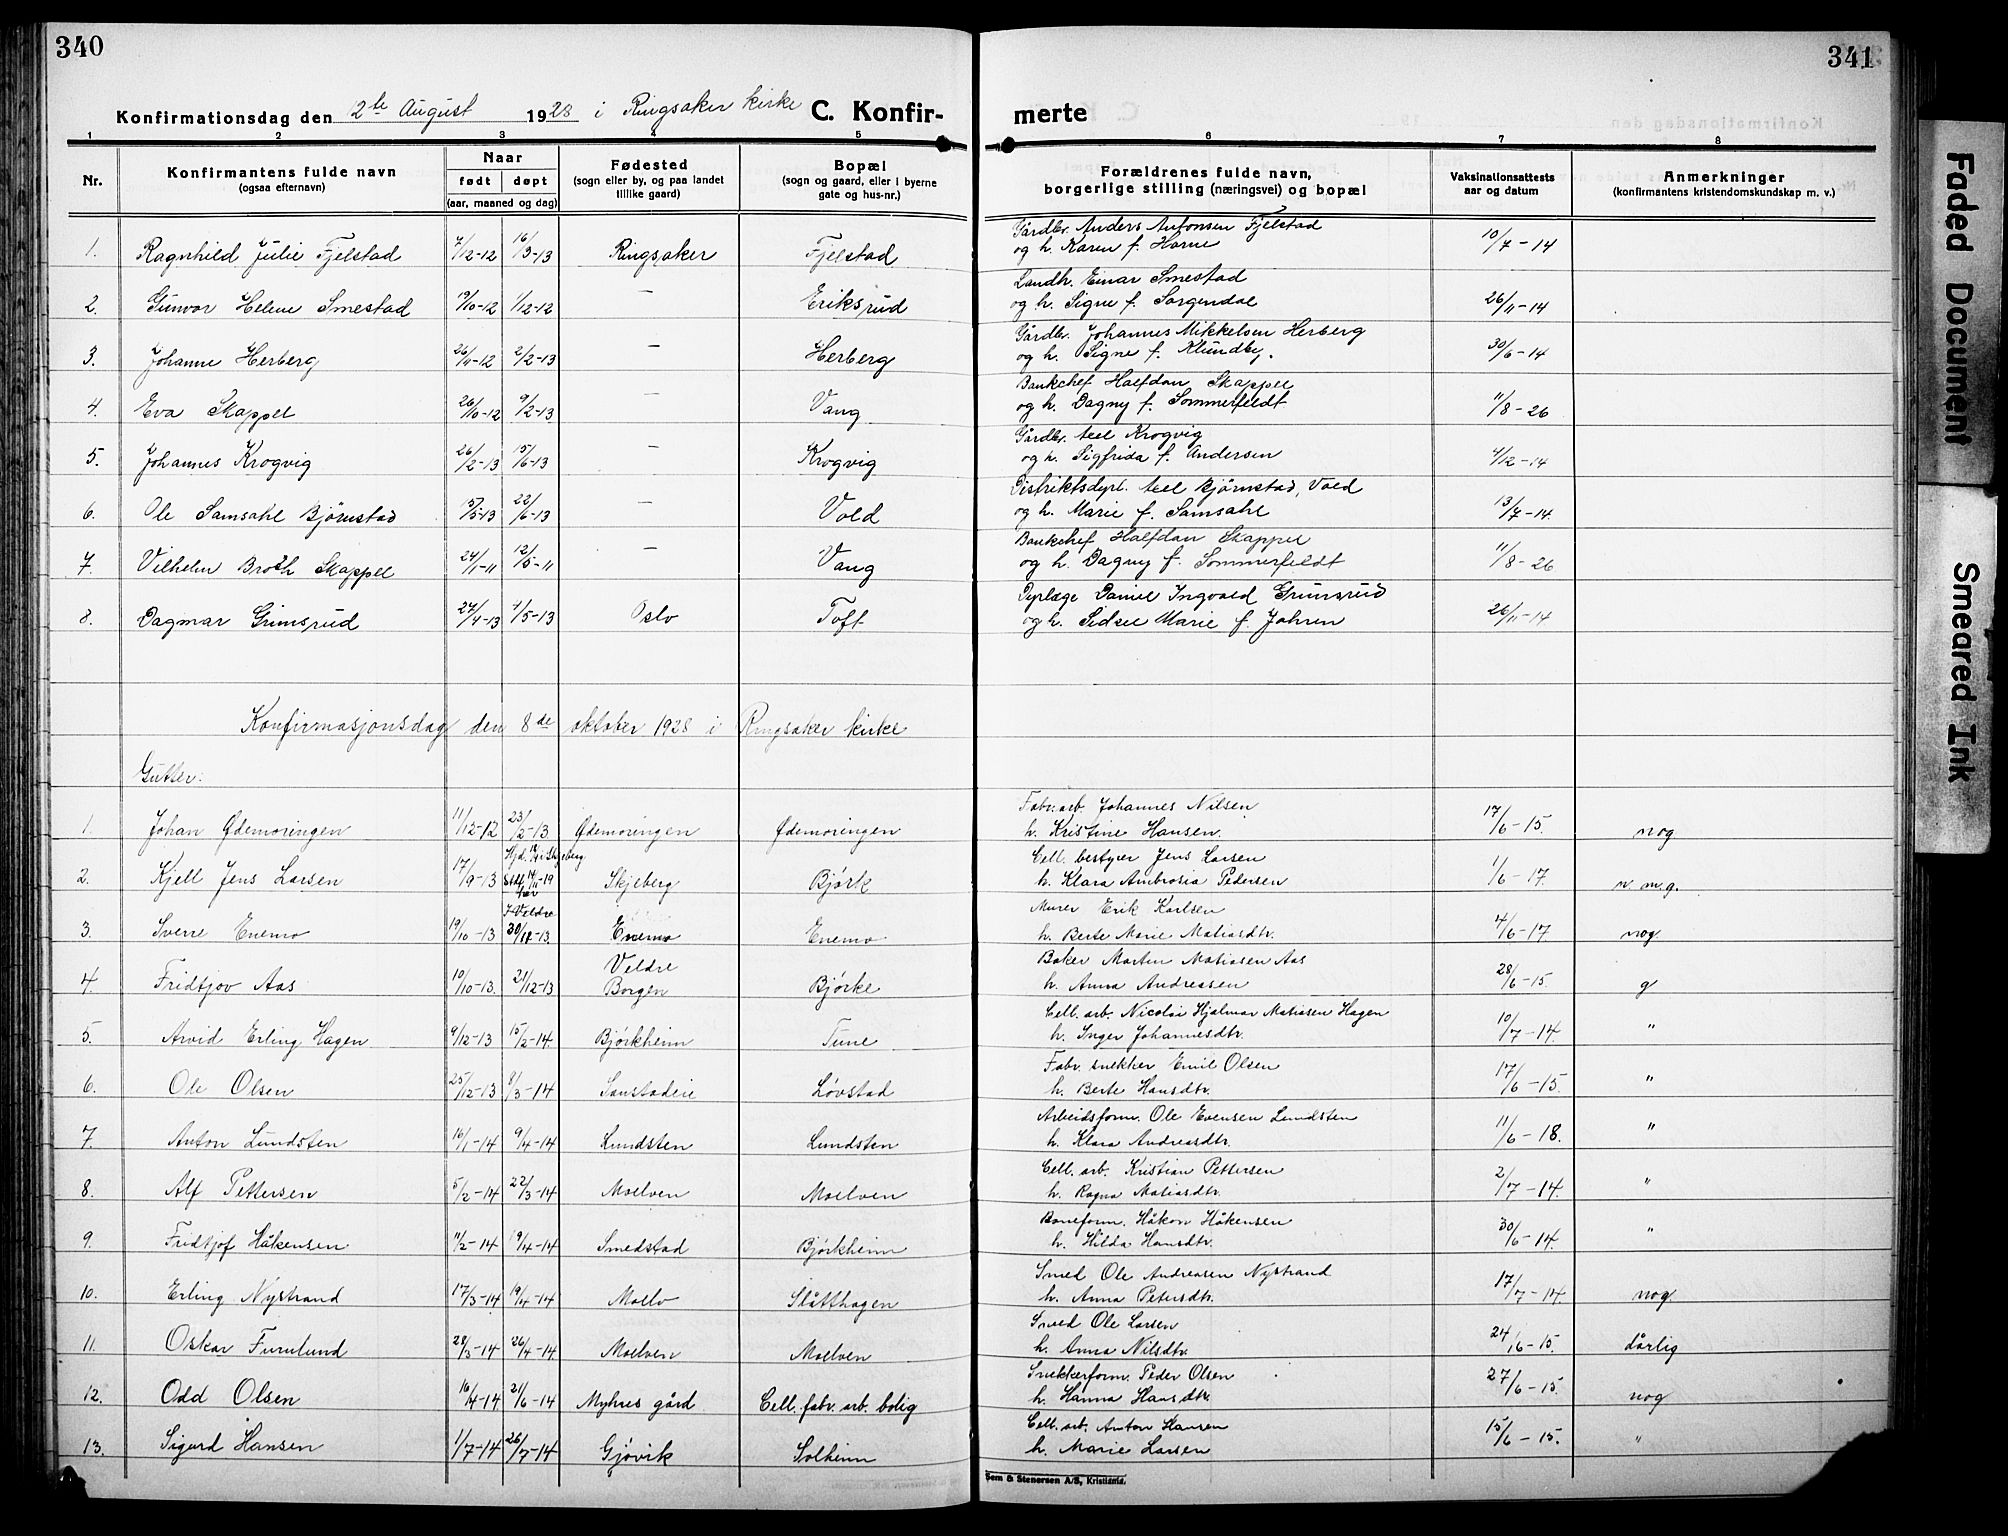 340
341
Konfirmationsdag den 12te August 1928 i Ringsaker kirke C. Konfir-
merte
1 2 3 4 5
6 7 8
Nr. Konfirmantens fulde navn (ogsaa efternavn) Naar født døpt (aar, maaned og dag) Fødested (sogn eller by, og paa landet tillike gaard) Bopæl (sogn og gaard, eller i byerne gate og hus-nr.)
Forældrenes fulde navn, borgerlige stilling (næringsvei) og bopæl Vaksinationsattests aar og datum Anmerkninger (konfirmantens kristendomskundskap m. v.)
1. Ragnhild Julie Fjelstad 7/12-12 16/3-13 Ringsaker Fjelstad
Gårdbr. Anders Antonsen Fjelstad
og h. Karen f. Horne 10/7-14
2. Gunvor Helene Smestad 19/10-12 1/12-12 — Eriksrud
Landh. Einar Smestad
og h. Signe f. Sorgendal 26/11-14
3. Johanne Herberg 26/11-12 2/2-13 — Herberg
Gårdbr. Johannes Mikkelsen Herberg
og h. Signe f. Klundby. 30/6-14
4. Eva Skappel 26/10-12 9/2-13 — Vang
Bankchef Halfdan Skappel
og h. Dagny f. Sommerfeldt 11/8-26
5. Johannes Krogvig 26/2-13 15/6-13 — Krogvig
Gårdbr. Krogvig
og h. Sigfrida f. Andersen 4/12-14
6. Ole Samsahl Bjørnstad 15/5-13 22/6-13 — Vold
Distriktsdyrl. Bjørnstad, Vold
og h. Marie f. Samsahl 13/7-14.
7. Vilhelm Broch Skappel 24/1-11 12/5-11 — Vang
Bankchef Halfdan Skappel
og h. Dagny f. Sommerfeldt 11/8-26
8. Dagmar Grimsrud 24/4-13 4/5-13 Oslo Toft
Dyrlæge Daniel Ingvald Grimsrud
og h. Sidsel Marie f. Johren 26/11-14
Konfirmasjonsdag den 8de oktober 1928 i Ringsaker kirke
Gutter:
1. Johan Ødemoringen 11/12-12 23/2-13 Ødemoringen Ødemoringen
Fabr.arb. Johannes Nilsen
h. Kristine Hansen. 17/6-15. nog
2. Kjell Jens Larsen 17/9-13 Skjeberg Bjørk
Cell. bestyrer Jens Larsen
h. Klara Ambrosia Pedersen 1/6-17. n.m.g.
3. Sverre Enemo 19/10-13 I Veldre 30/11-13 Enemo Enemo
Murer Erik Karlsen
h. Berte Marie Matiasdtr. 4/6-17 nog.
4. Fridtjov Aas 10/10-13. 21/12-13 Veldre Borgen Bjørke
Baker Morten Matiasen Aas
h. Anna Andreassen 28/6-15. g
5. Arvid Erling Hagen 9/12-13 15/2-14. Bjørkheim Tune
Cell. arb. Nicolai Hjalmar Matiasen Hagen
h. Inger Johannesdtr. 10/7-14. "
6. Ole Olsen 25/12-13 9/3-14 Sanstadeie Løvstad
Fabr. snekker Emil Olsen
h. Berte Hansdtr. 17/6-15. "
7. Anton Lundsten 16/1-14 9/4-14 Lundsten Lundsten
Arbeidsform. Ole Evensen Lundsten
h. Klara Andreasdtr. 11/6-18. "
8. Alf Pettersen 5/2-14 22/3-14 Moelven Moelven
Cell. arb. Kristian Pettersen
h. Ragna Matiasdtr. 2/7-14. "
9. Fridtjof Håkensen 11/2-14 19/4-14 Smedstad Bjørkheim
Håkon Håkensen
h. Hilda Hansdtr. 30/6-14. "
10. Erling Nystrand 17/3-14 19/4-14 Moelv Slåtthagen
Smed Ole Andreasen Nystrand
h. Anna Petersdtr. 17/7-14. nog.
11. Oskar Furulund 28/3-14 26/4-14 Moelven Moelven
Smed Ole Larsen
h. Anna Nilsdtr. 24/6-15. dårlig
12. Odd Olsen 16/4-14 21/6-14 Myhres gård Cell. fabr. arb. bolig
Snekkerform. Peder Olsen
h. Hanna Hansdtr. 27/6-15. nog
13. Sigurd Hansen 1/7-14 26/7-14 Gjøvik Solheim
Cell. arb. Anton Hansen
h. Marie Larsen 15/6-15. "
Sem & Stenersen A/S, Kristiania.
Faded Document
Smeared Ink